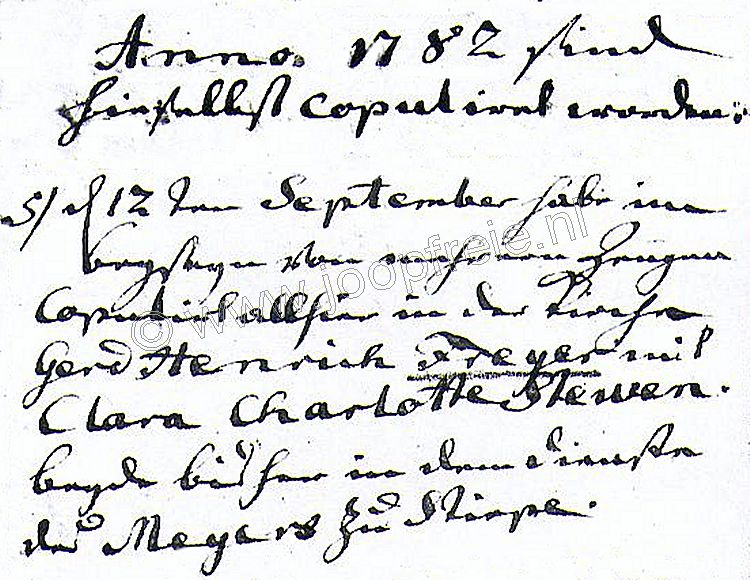 Anno. 1782 sind
hieselbst copulirt worden.
5/ d 12 ten September habe im
beyseyn von mehrern Zeugen
Copulirt allhier in der Kirche
Gerd Henrich Freyer mit
Clara Charlotte Stewen.
beyde bisher in dem dienste
des Meyers zu Stirpe.
© www.joopfreie.nl